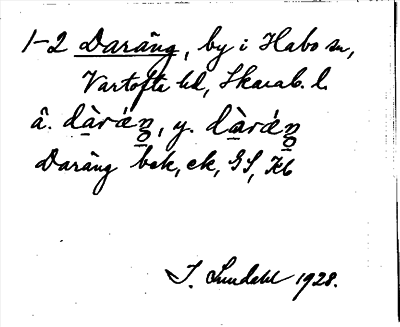 1-2 Daräng, by i Habo sn,
Vartofta hd, Skarab. l.
ä. dàráŋ, y. dàráŋ
Daräng bok, ek, GS, Kb
I. Lundahl 1928.